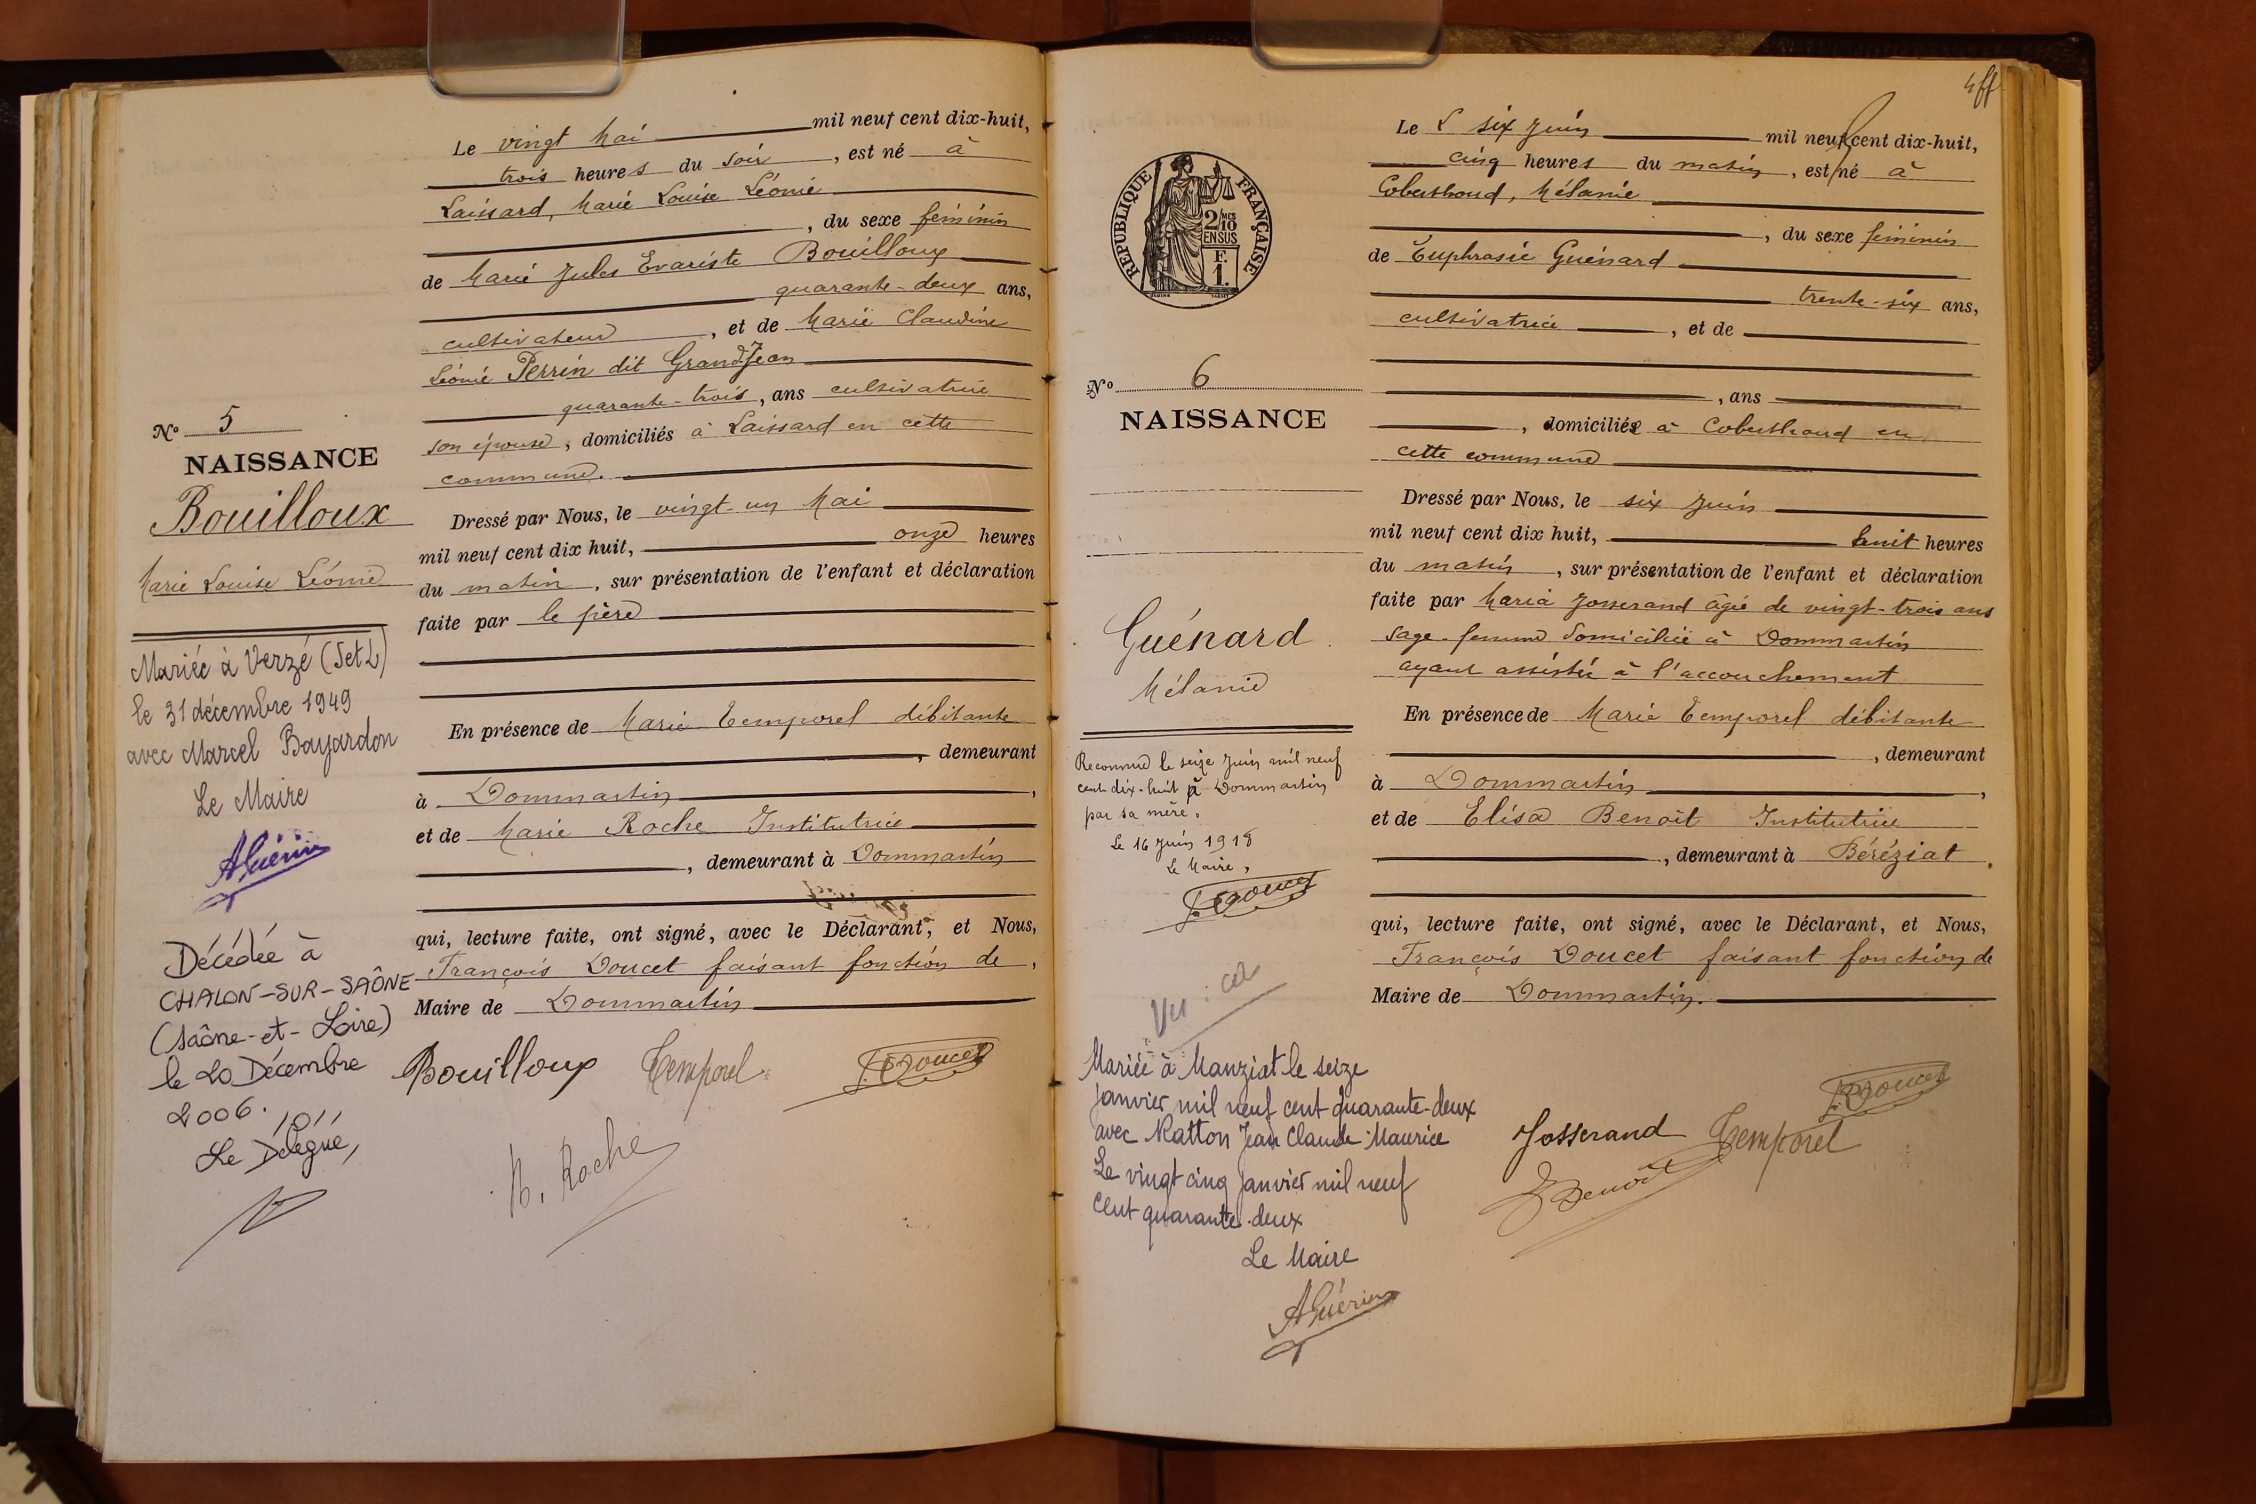 N° 5
NAISSANCE
Bouilloux
Marie Louise Léonie
Mariée à Verzé (S et L)
le 31 décembre 1949
avec Marcel Bayardon
Le Maire
AGuérin
Décédée à
CHALON-SUR-SAÔNE
(Saône-et-Loire)
le 20 Décembre
2006.
Le Délégué,
Le vingt Mai mil neuf cent dix-huit,
trois heures du soir, est né à
Laissard, Marie Louise Léonie
, du sexe féminin
de Marie Jules Evariste Bouilloux
quarante-deux ans,
cultivateur, et de Marie Claudine
Léonie Perrin dit GrandJean
quarante-trois, ans cultivatrice
son épouse, domiciliés à Laissard en cette
commune.
Dressé par Nous, le vingt-un Mai
mil neuf cent dix huit, onze heures
du matin, sur présentation de l'enfant et déclaration
faite par le père
En présence de Marie Temporel débitante
, demeurant
à Dommartin,
et de Marie Roche Institutrice
, demeurant à Dommartin
qui, lecture faite, ont signé, avec le Déclarant, et Nous,
François Doucet faisant fonction de,
Maire de Dommartin
Bouilloux Temporel F. Doucet
M. Roche
4 ff
RÉPUBLIQUE FRANÇAISE
2/10 MES
EN SUS
F.
1.
N° 6
NAISSANCE
Guénard
Mélanie
Reconnue le seize Juin mil neuf
cent dix-huit à Dommartin
par sa mère.
Le 16 Juin 1918
Le Maire,
F. Doucet
Vu :
Mariée à Manziat le seize
janvier mil neuf cent quarante-deux
avec Ratton Jean Claude Maurice
Le vingt cinq janvier mil neuf
cent quarante-deux
Le Maire
AGuérin
Le six Juin mil neuf cent dix-huit,
cinq heures du matin, est né à
Coberthoud, Mélanie
, du sexe féminin
de Euphrasie Guénard
trente-six ans,
cultivatrice, et de
, ans
, domiciliée à Coberthoud en
cette commune
Dressé par Nous, le six Juin
mil neuf cent dix huit, huit heures
du matin, sur présentation de l'enfant et déclaration
faite par Maria Josserand âgée de vingt-trois ans
sage-femme domiciliée à Dommartin
ayant assistée à l'accouchement
En présence de Marie Temporel débitante
, demeurant
à Dommartin,
et de Elisa Benoît Institutrice
, demeurant à Béréziat.
qui, lecture faite, ont signé, avec le Déclarant, et Nous,
François Doucet faisant fonction de
Maire de Dommartin.
F. Doucet
Josserand Temporel
E Benoît